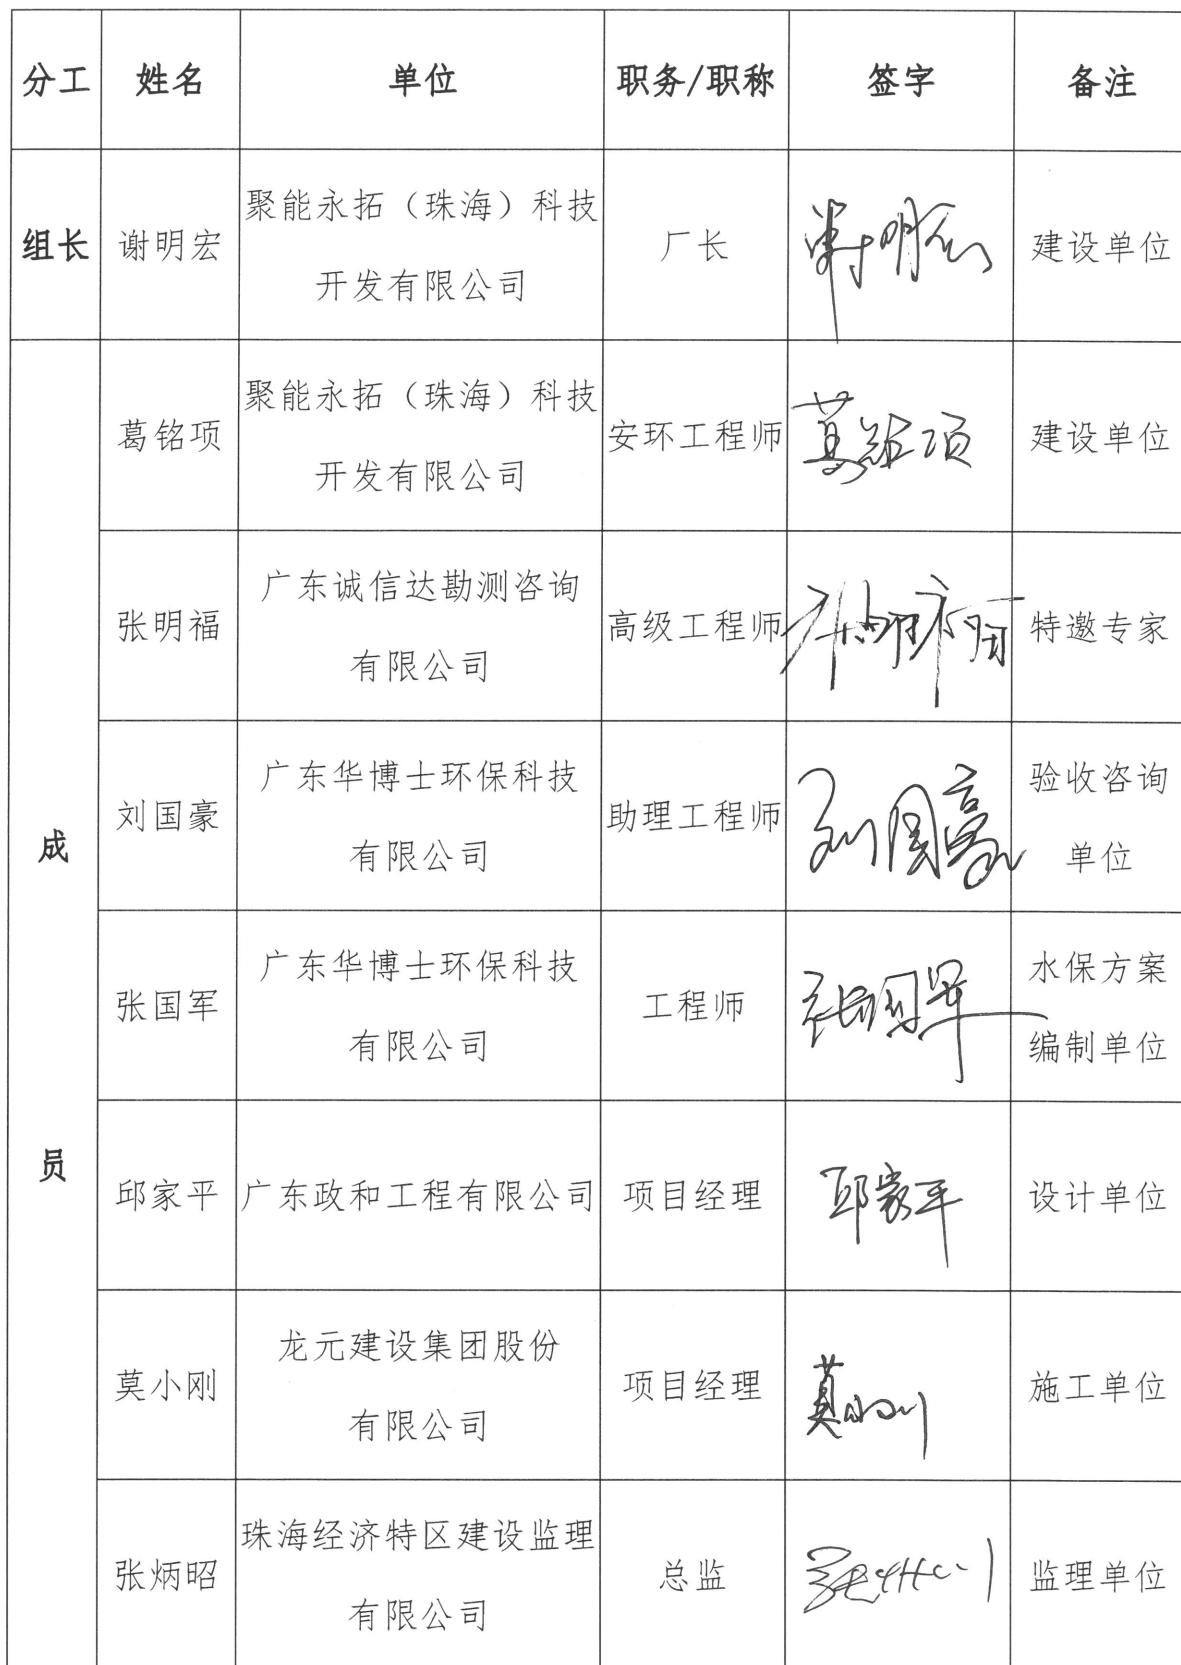 分工 姓名 单位 职务/职称 签字 备注
组长 谢明宏 聚能永拓（珠海）科技 开发有限公司 厂长 谢明宏 建设单位
成员
葛铭项 聚能永拓（珠海）科技 开发有限公司 安环工程师 葛铭项 建设单位
张明福 广东诚信达勘测咨询 有限公司 高级工程师 张明福 特邀专家
刘国豪 广东华博士环保科技 有限公司 助理工程师 刘国豪 验收咨询 单位
张国军 广东华博士环保科技 有限公司 工程师 张国军 水保方案 编制单位
邱家平 广东政和工程有限公司 项目经理 邱家平 设计单位
莫小刚 龙元建设集团股份 有限公司 项目经理 莫小刚 施工单位
张炳昭 珠海经济特区建设监理 有限公司 总监 监理单位